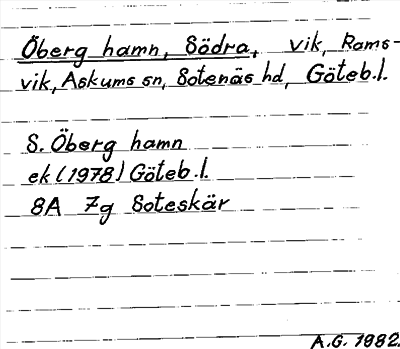 Öberg hamn, Södra, vik, Rams-
vik, Askums sn, Sotenäs hd, Göteb.l.
S. Öberg hamn
ek (1978) Göteb.l.
8A 7g Soteskär
A.G. 1982.